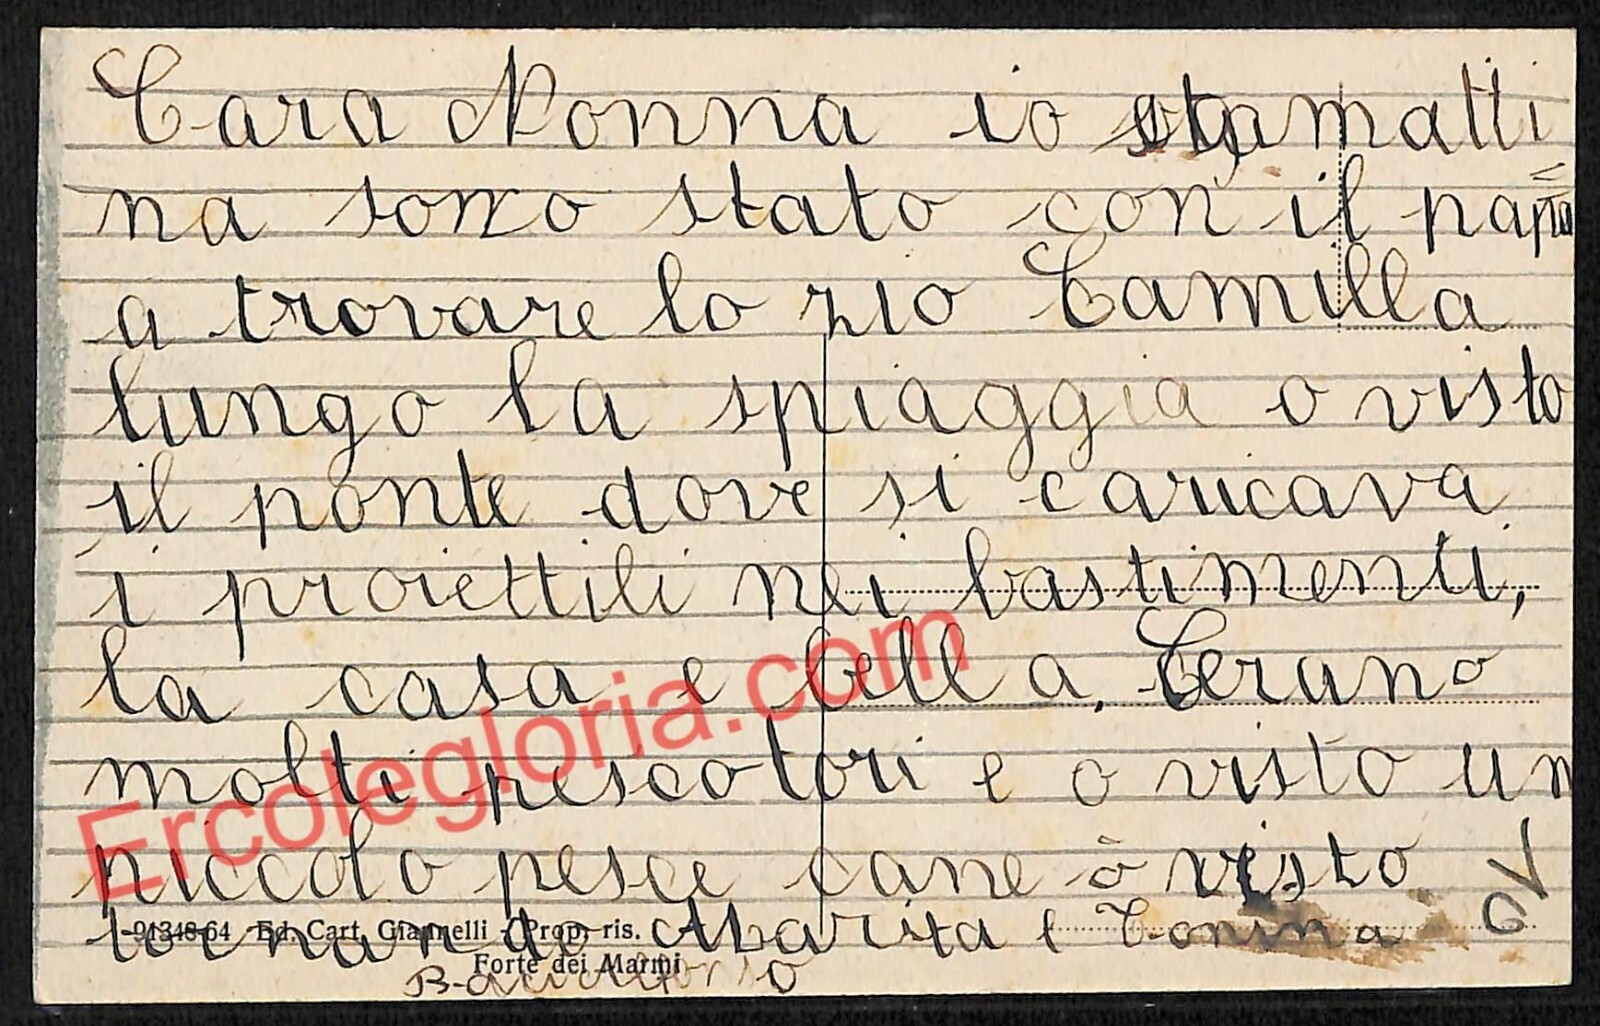 Cara Nonna io stamatti
na sono stato con il papà
a trovare lo zio Camilla
lungo la spiaggia o visto
il ponte dove si caricava
i proiettili nei bastimenti,
la casa e bella. Cerano
molti pescatori e o visto un
piccolo pesce cane ò visto
tornando Marita e Tonina
91348-64 Ed. Cart. Giannelli - Prop. ris.
Forte dei Marmi
Ercolegloria.com